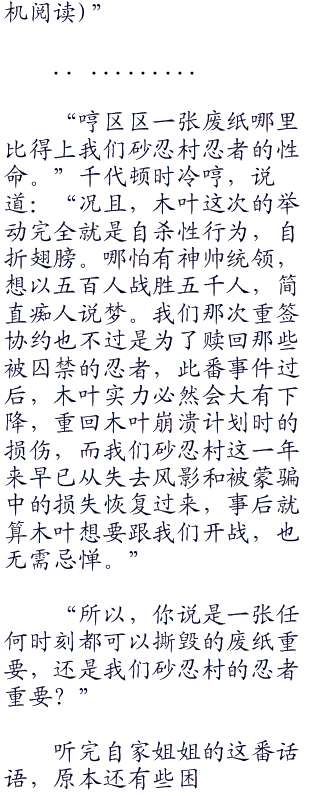 机阅读)”
.. .........
“哼区区一张废纸哪里
比得上我们砂忍村忍者的性
命。”千代顿时冷哼，说
道：“况且，木叶这次的举
动完全就是自杀性行为，自
折翅膀。哪怕有神帅统领，
想以五百人战胜五千人，简
直痴人说梦。我们那次重签
协约也不过是为了赎回那些
被囚禁的忍者，此番事件过
后，木叶实力必然会大有下
降，重回木叶崩溃计划时的
损伤，而我们砂忍村这一年
来早已从失去风影和被蒙骗
中的损失恢复过来，事后就
算木叶想要跟我们开战，也
无需忌惮。”
“所以，你说是一张任
何时刻都可以撕毁的废纸重
要，还是我们砂忍村的忍者
重要？”
听完自家姐姐的这番话
语，原本还有些困